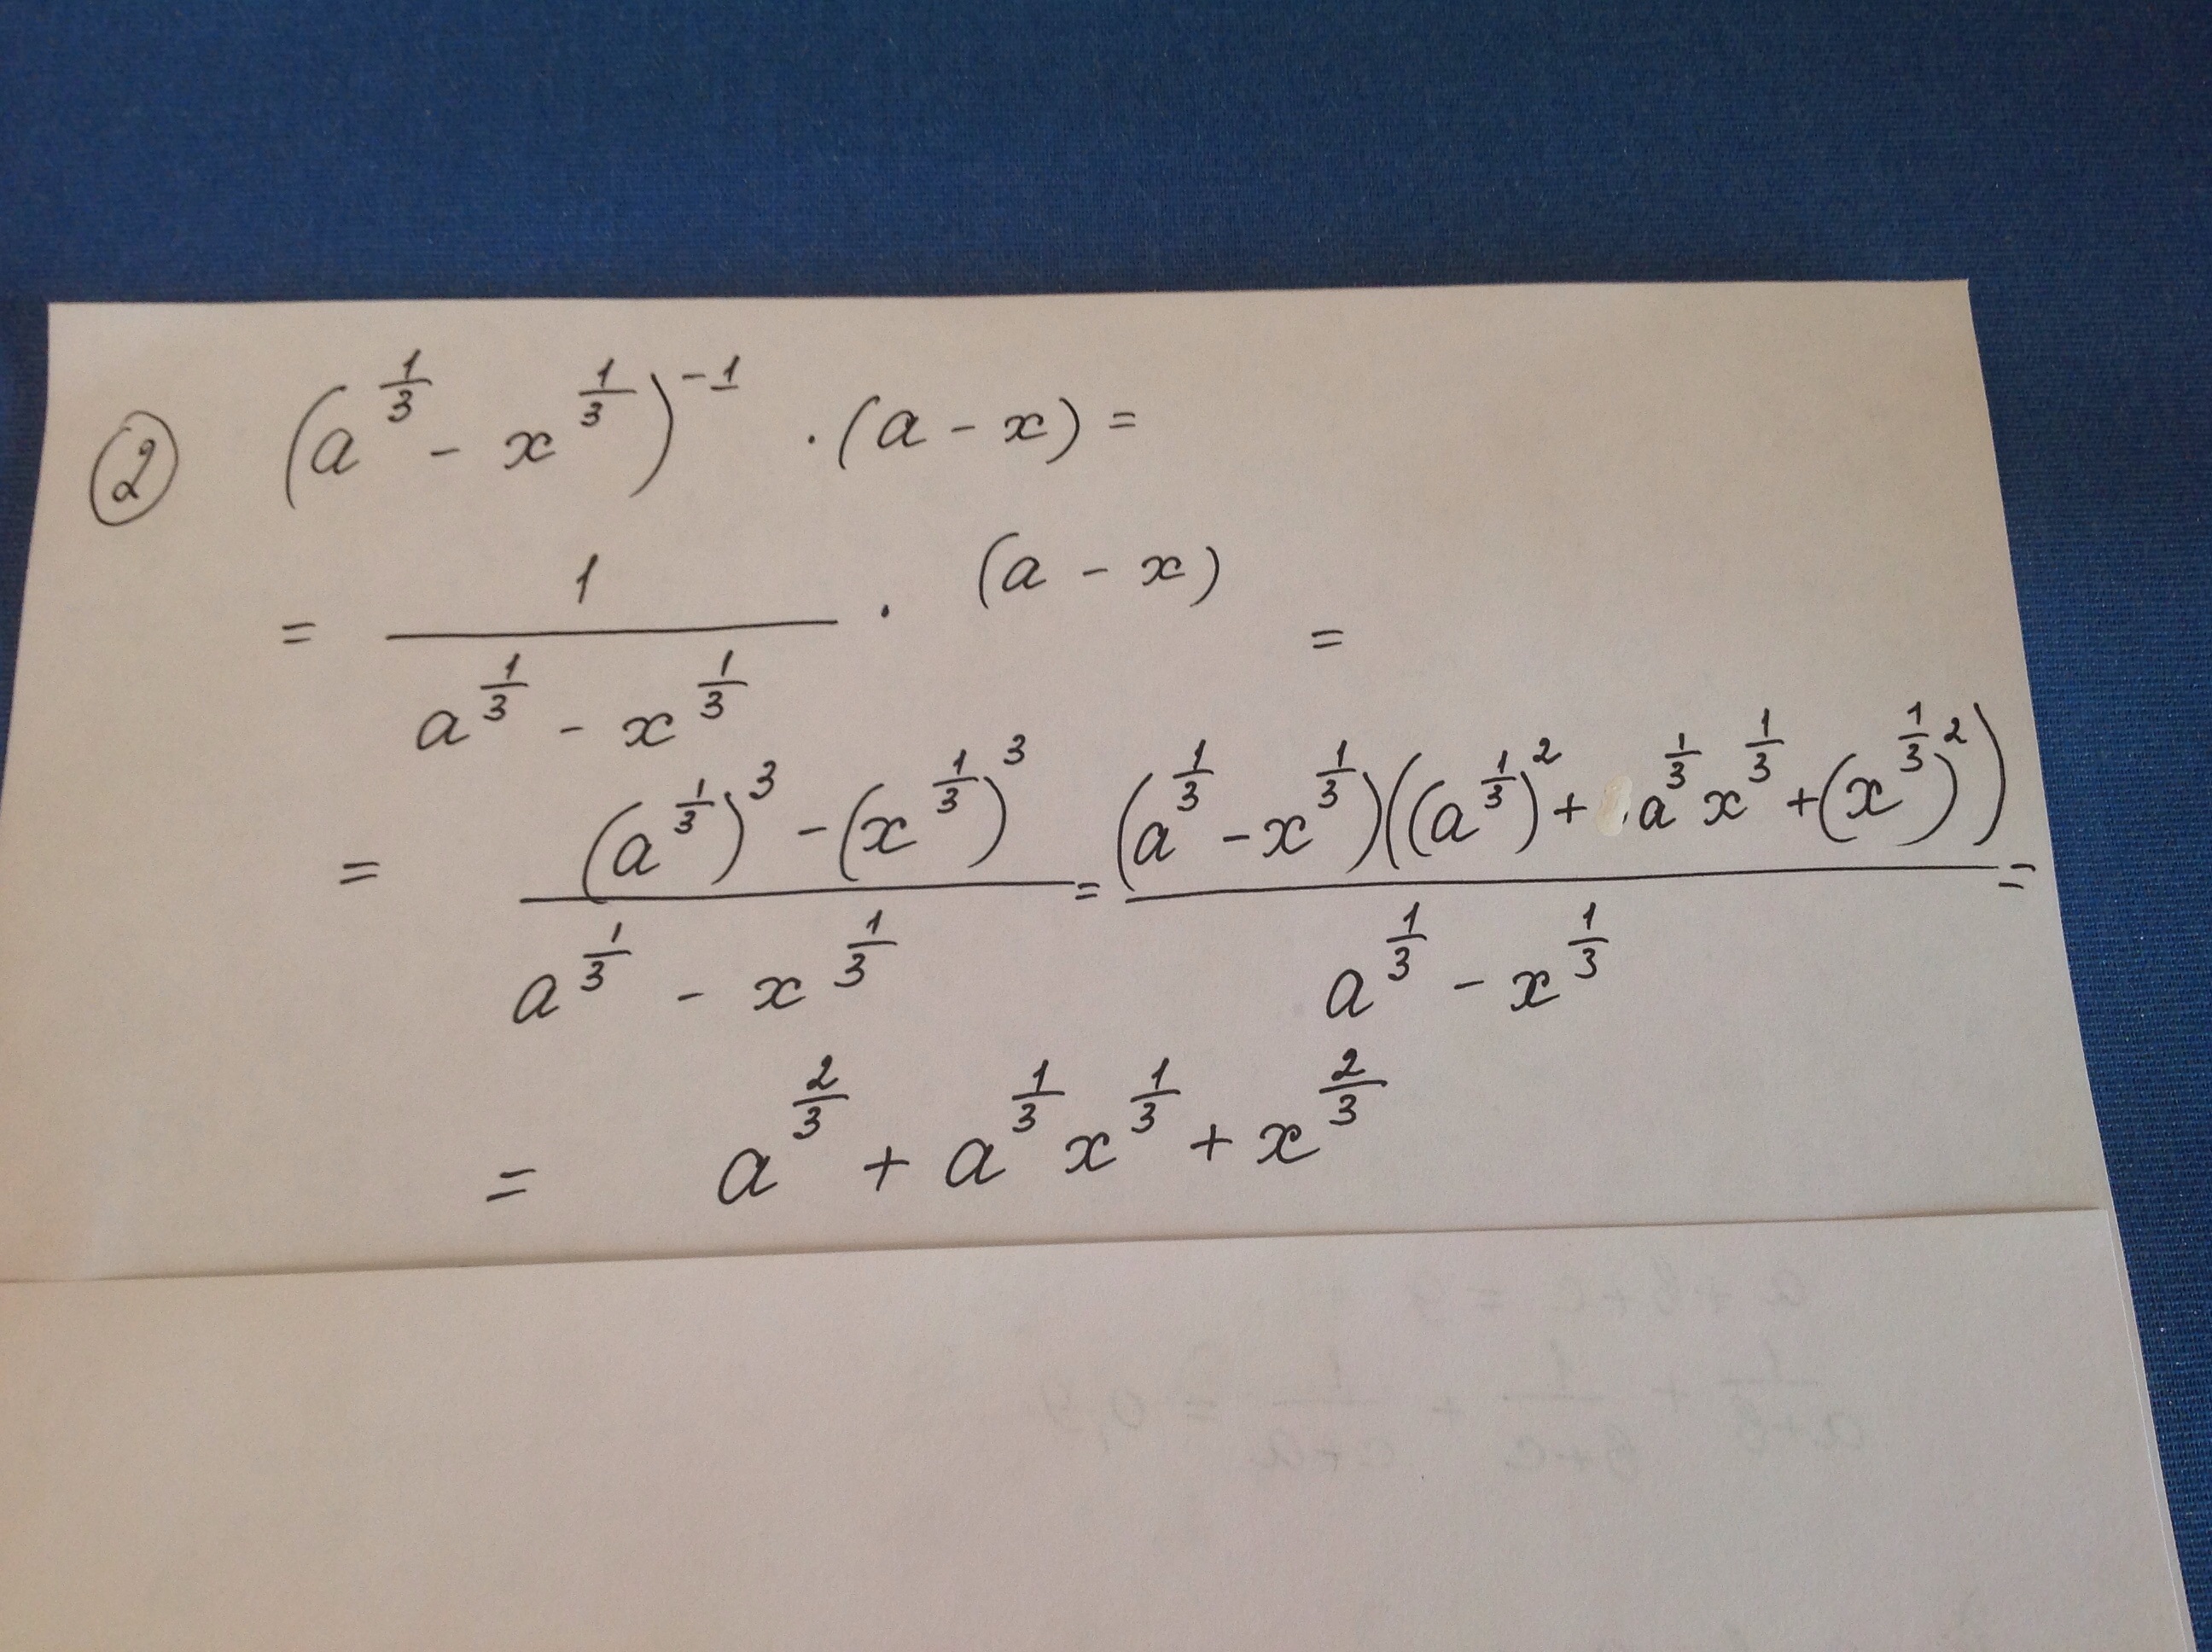 ② (a^{1/3} - x^{1/3})^{-1} · (a - x) =
= \frac{1}{a^{1/3} - x^{1/3}} · (a - x) =
= \frac{(a^{1/3})^3 - (x^{1/3})^3}{a^{1/3} - x^{1/3}} = \frac{(a^{1/3} - x^{1/3})((a^{1/3})^2 + a^{1/3} x^{1/3} + (x^{1/3})^2)}{a^{1/3} - x^{1/3}} =
= a^{2/3} + a^{1/3} x^{1/3} + x^{2/3}